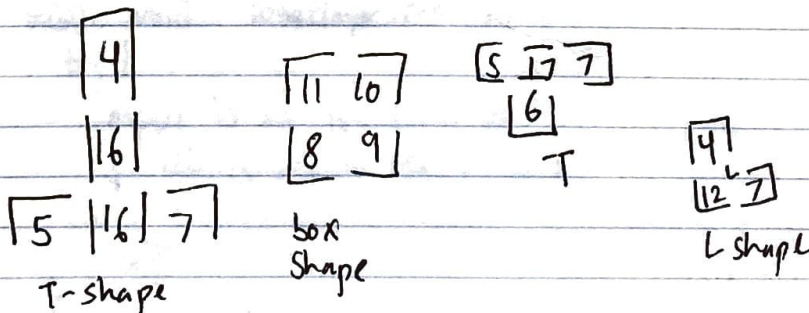 4
16
5 16 7
T-shape
11 10
8 9
box
shape
5 17 7
6
T
4
12 7
L shape